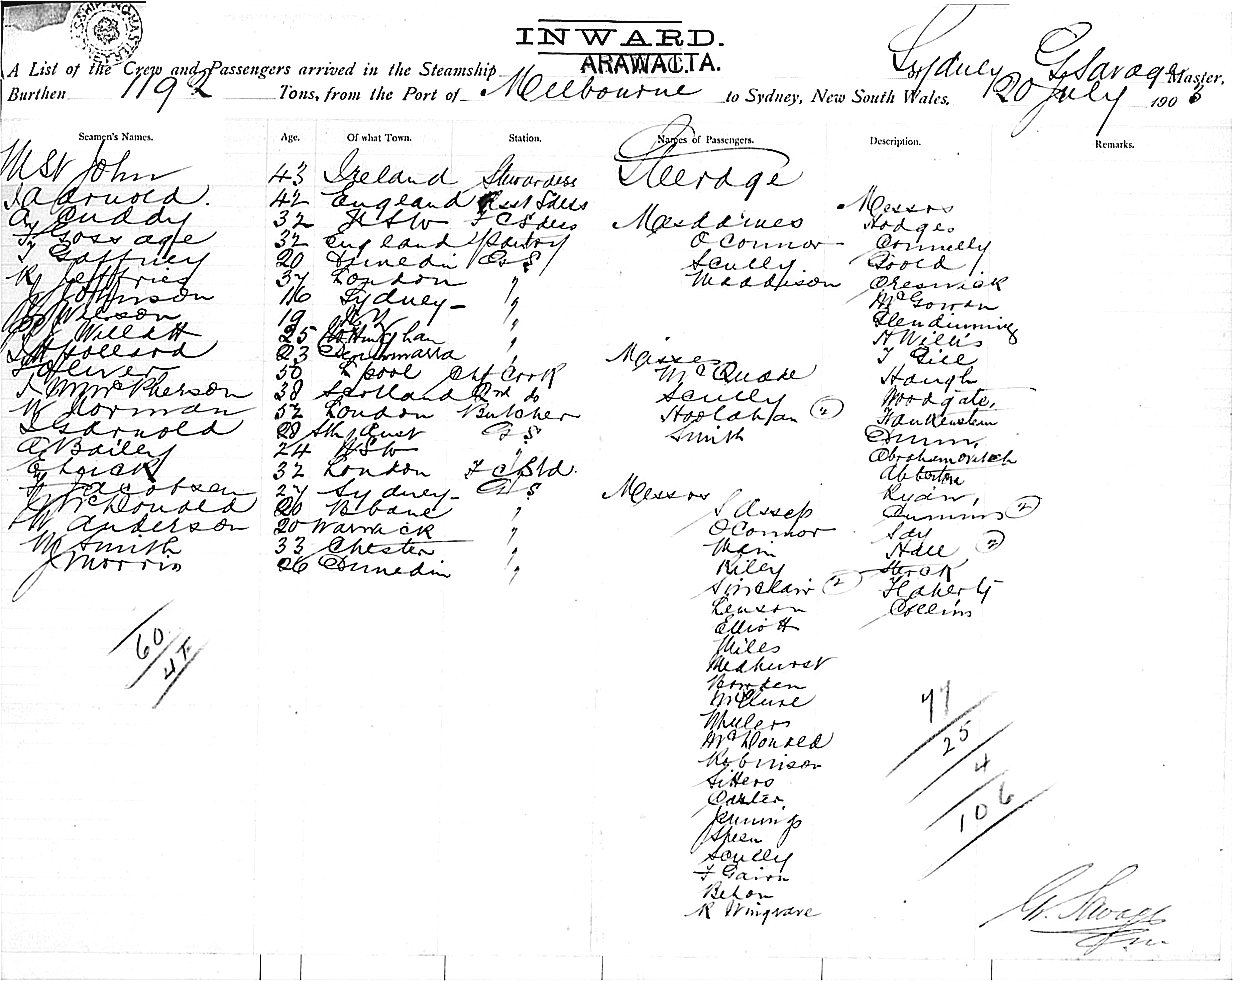 INWARD.
ARAWATTA.
A List of the Crew and Passengers arrived in the Steamship Sydney G Savage Master,
Burthen 1192 Tons, from the Port of Melbourne to Sydney, New South Wales, 20 July 1903
Seamen's Names. Age. Of what Town. Station. Names of Passengers. Description. Remarks.
M St John 43 Ireland Stewardess
Arnold 42 England Asst Sdess
A Cuddy 32 NSW F C Sdess
Gossage 32 England Pantry
T Gaffney 20 Dunedin G S
Jeffries 37 London "
Johnson 16 Sydney "
Wilson 19 "
Willatt 25 "
Hollard 23 "
Oliver 50 L'pool Ch Cook
McPherson 38 Scotland 2nd do
W Norman 52 London Butcher
Arnold 28 G S
A Bailey 24 NSW "
32 London F C Std
Jacobsen 27 Sydney G S
McDonald 20 Bbane "
W Anderson 20 Warrack "
W Smith 33 Chester "
J Morris 26 Dunedin "
60
47
Steerage
Mesdames
O'Connor
Scully
Maddison
Misses
McQuade
Scully
Hoolahan (2)
Smith
Messrs
O'Connor
Main
Riley
Sinclair (2)
Lewson
Elliott
Miles
Medhurst
Bowden
McClure
McDonald
Robinson
Sitters
Carter
Jennings
Scully
Behan
R Wingrave
Messrs
Hodges
Connelly
Goold
Creswick
McGowan
Glendinning
H Willis
T Gill
Hough
Woodgate,
Frankenstein
Dunn,
Abrahamovitch
Abberton
Ryan,
Cummins (2)
Day
Hall (2)
Sterck
Flaherty
Collins
77
25
4
106
G. Savage